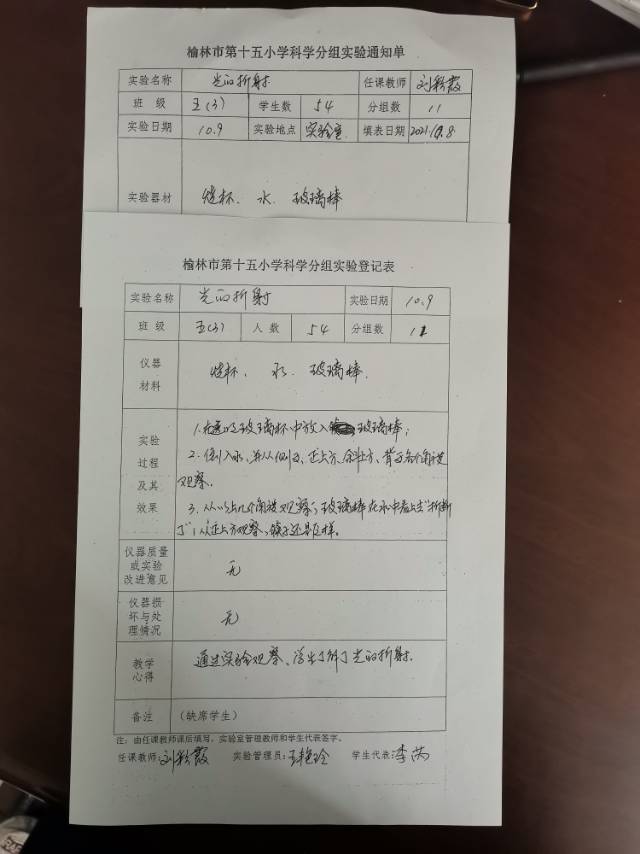 榆林市第十五小学科学分组实验通知单
实验名称 光的折射 任课教师 刘彩霞
班 级 五(3) 学生数 54 分组数 11
实验日期 10.9 实验地点 实验室 填表日期 2021.10.8
实验器材 烧杯、水、玻璃棒
榆林市第十五小学科学分组实验登记表
实验名称 光的折射 实验日期 10.9
班 级 五(3) 人 数 54 分组数 11
仪器
材料 烧杯、水、玻璃棒.
实验
过程
及其
效果
1.在透明玻璃杯中放入玻璃棒;
2.倒入水,并从侧面、正上方、斜上方、背面各个角度
观察。
3.从以上几个角度观察,玻璃棒在水中看上去"折断
了",从正上方观察,镜子还是这样。
仪器质量
或实验
改进意见 无
仪器损
坏与处
理情况 无
教学
心得 通过实验观察、学生了解了光的折射.
备注 (缺席学生)
注:由任课教师课后填写,实验室管理教师和学生代表签字。
任课教师:刘彩霞 实验管理员:王艳玲 学生代表:李芮